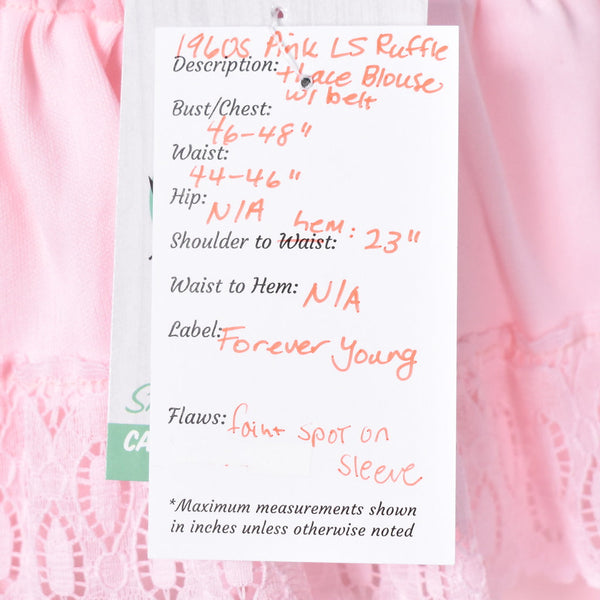 1960s Pink LS Ruffle
Description: + lace Blouse
w/ belt
Bust/Chest:
46-48"
Waist:
44-46"
Hip:
N/A
hem:
Shoulder to Waist: 23"
Waist to Hem: N/A
Label: Forever Young
Flaws: faint spot on
sleeve
*Maximum measurements shown
in inches unless otherwise noted
CA